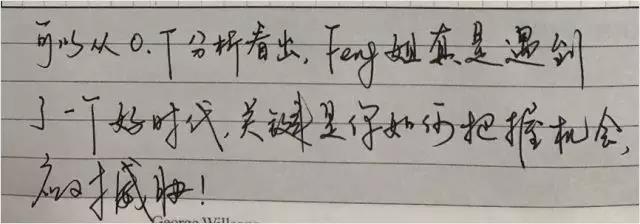 可以从O.T分析看出,Feng姐真是遇到
了一个好时代,关键是你如何把握机会,
George Will